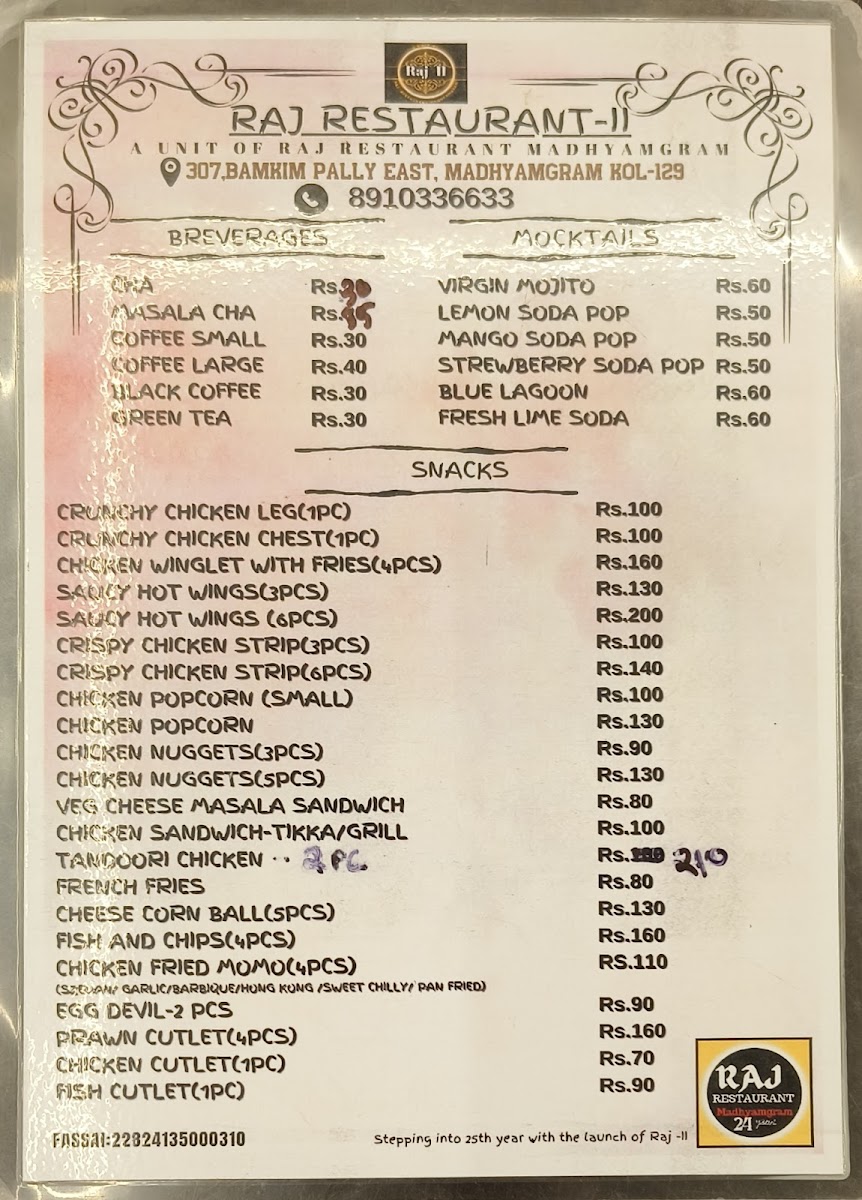 Raj II
RAJ RESTAURANT-II
A UNIT OF RAJ RESTAURANT MADHYAMGRAM
307,BAMKIM PALLY EAST, MADHYAMGRAM KOL-129
8910336633
BREVERAGES
CHA Rs.
MASALA CHA Rs.
COFFEE SMALL Rs.30
COFFEE LARGE Rs.40
BLACK COFFEE Rs.30
GREEN TEA Rs.30
MOCKTAILS
VIRGIN MOJITO Rs.60
LEMON SODA POP Rs.50
MANGO SODA POP Rs.50
STREWBERRY SODA POP Rs.50
BLUE LAGOON Rs.60
FRESH LIME SODA Rs.60
SNACKS
CRUNCHY CHICKEN LEG(1PC) Rs.100
CRUNCHY CHICKEN CHEST(1PC) Rs.100
CHICKEN WINGLET WITH FRIES(4PCS) Rs.160
SAUCY HOT WINGS(3PCS) Rs.130
SAUCY HOT WINGS (6PCS) Rs.200
CRISPY CHICKEN STRIP(3PCS) Rs.100
CRISPY CHICKEN STRIP(6PCS) Rs.140
CHICKEN POPCORN (SMALL) Rs.100
CHICKEN POPCORN Rs.130
CHICKEN NUGGETS(3PCS) Rs.90
CHICKEN NUGGETS(5PCS) Rs.130
VEG CHEESE MASALA SANDWICH Rs.80
CHICKEN SANDWICH-TIKKA/GRILL Rs.100
TANDOORI CHICKEN .. 2 PC Rs. 210
FRENCH FRIES Rs.80
CHEESE CORN BALL(5PCS) Rs.130
FISH AND CHIPS(4PCS) Rs.160
CHICKEN FRIED MOMO(4PCS) RS.110
GARLIC/BARBIQUE/HONG KONG /SWEET CHILLY/ PAN FRIED)
EGG DEVIL-2 PCS Rs.90
PRAWN CUTLET(4PCS) Rs.160
CHICKEN CUTLET(1PC) Rs.70
FISH CUTLET(1PC) Rs.90
FASSAI:22824135000310
Stepping into 25th year with the launch of Raj -II
RAJ
RESTAURANT
Madhyamgram
24 year